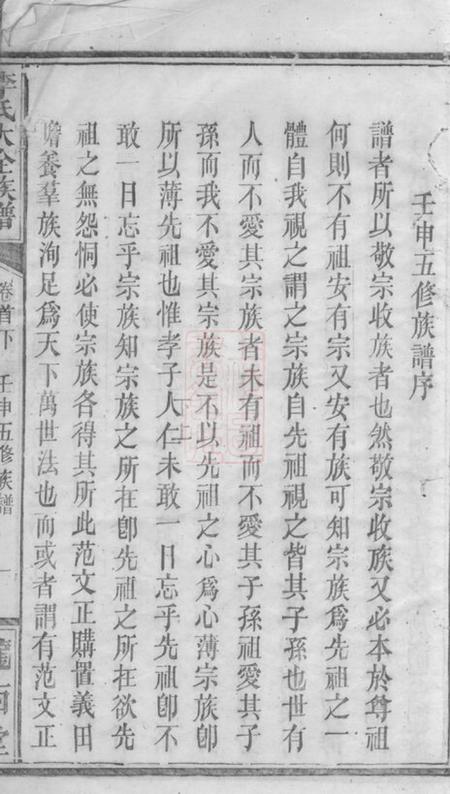 壬申五修族譜序
譜者所以敬宗收族者也然敬宗收族又必本於尊祖
何則不有祖安有宗又安有族可知宗族爲先祖之一
體自我視之謂之宗族自先祖視之皆其子孫也世有
人而不愛其宗族者未有祖而不愛其子孫祖愛其子
孫而我不愛其宗族是不以先祖之心爲心薄宗族卽
所以薄先祖也惟孝子仁人未敢一日忘乎先祖卽不
敢一日忘乎宗族知宗族之所在卽先祖之所在欲先
祖之無怨恫必使宗族各得其所此范文正購置義田
贍養羣族洵足爲天下萬世法也而或者謂有范文正
李氏大全族譜
卷首下 壬申五修族譜